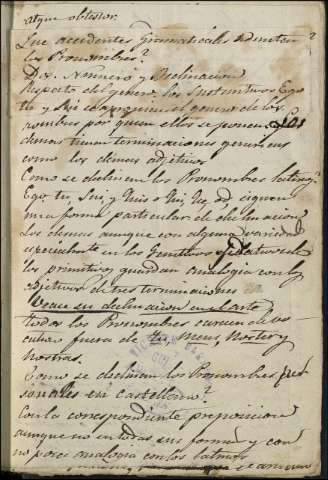 atque obtestor.
Que accidentes Gramaticales admiten
los Pronombres?
Dos. Numero y Declinacion
Respecto del genero, los Sustantivos Ego
tu y Sui el genero de los
nombres por quien ellos se ponen. Los
demas tienen terminaciones genericas
como los demas adjetivos
Como se declinan los Pronombres latinos?
Ego, tu, Sui, y Quis o Qui, siguen
una forma particular de declinacion
Los demas aunque con alguna variedad
especialmente en los Genitivos y Dativos de
los primitivos guardan analogia con los
adjetivos de tres terminaciones
Vease su declinacion en el arte
todos los Pronombres carecen de vo
cativo fuera de Tu, Meus, Noster y
Nostras.
Como se declinan los Pronombres per
sonales en castellano?
Con la correspondiente preposicion
aunque no en todas sus formas y con
no poca analogia con los latinos